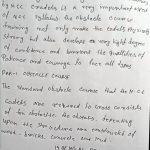 by NCC Candets is a very important area
of NCC syllabus the obstacle course
training not only make the cadets Physically
strong but also develops a very hight degree
of confidence and the qualities of
Patience and courage to face all types
obstacle course
The standard obstacle course that the NCC
Cadets are required to cross consists
of ten obstacle the obstacles, depending
upon the are made of
wood, bricks, concrete and mud